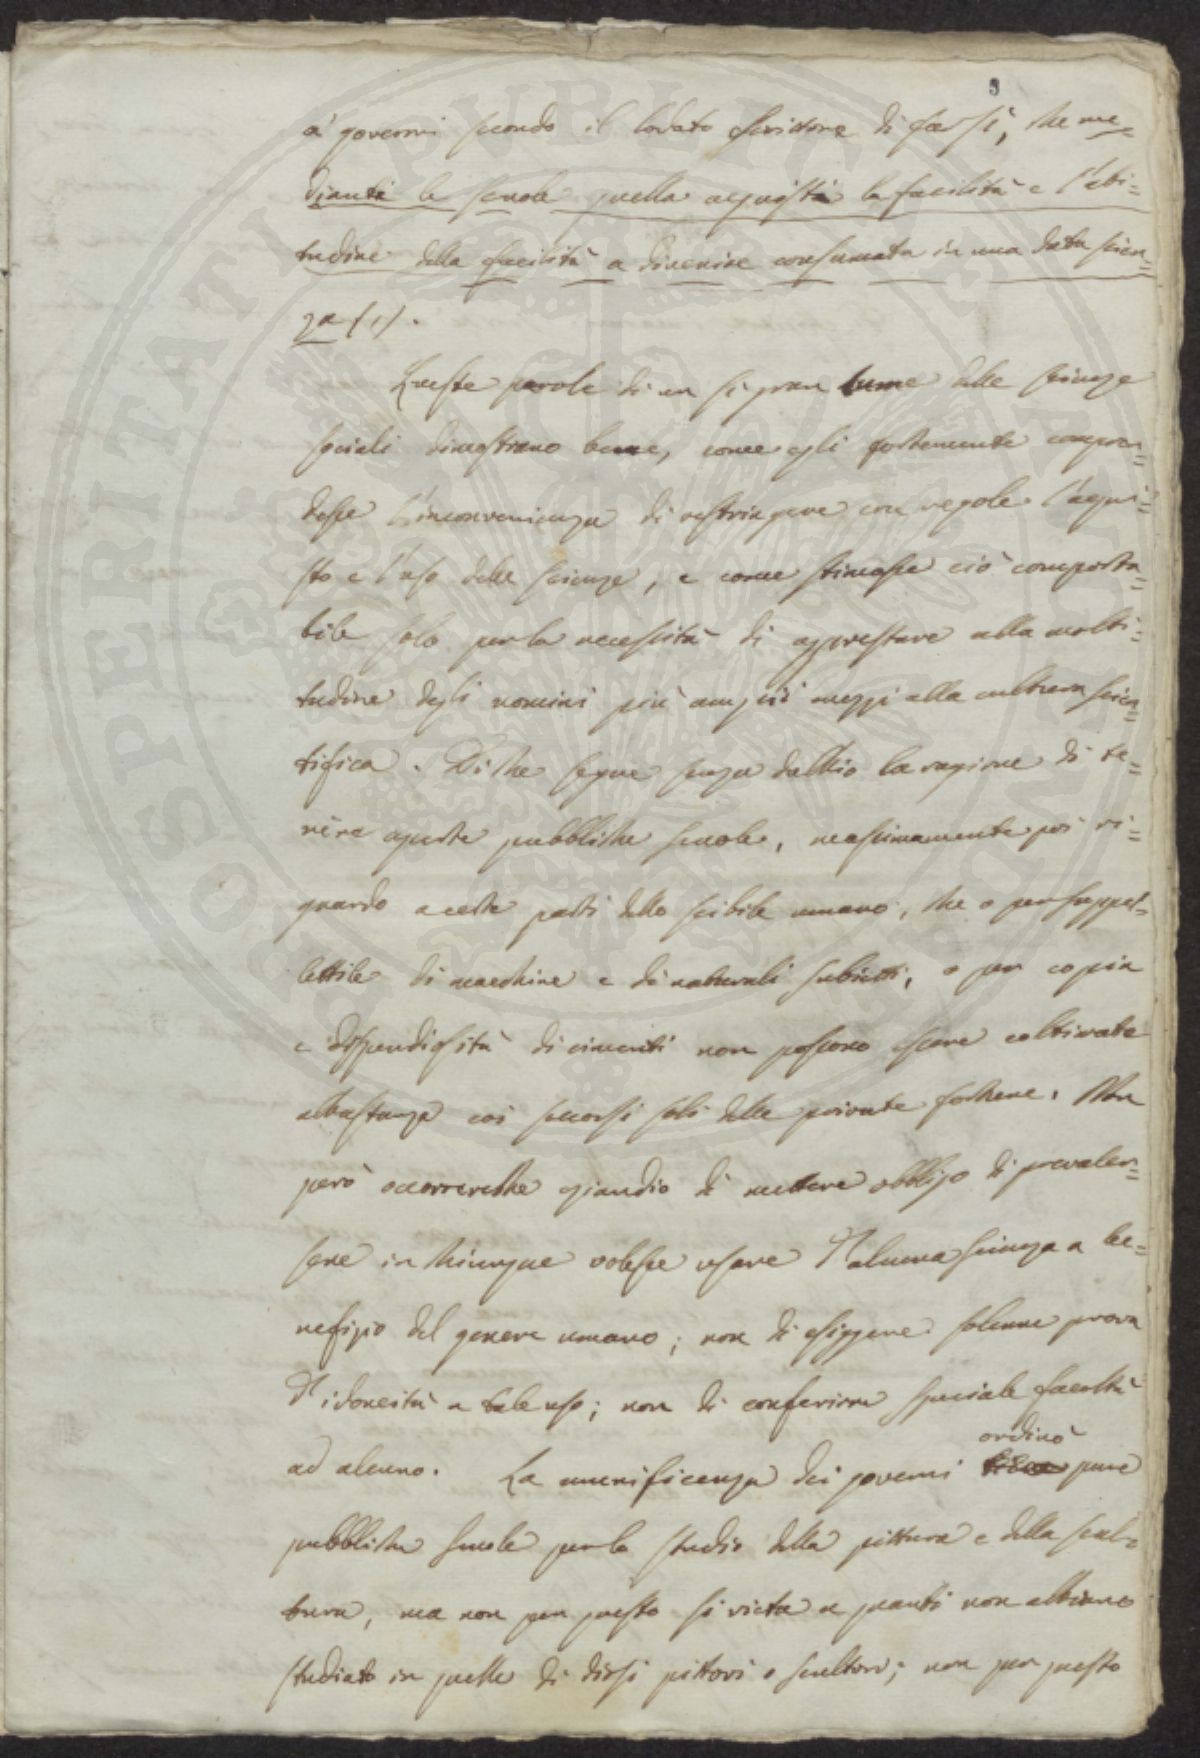 9
a' governi secondo il lodato scrittore di far sì, che me=
dianti le scuole quella acquisti la facilità e l'abi=
tudine della facilità a divenire consumata in una data scien=
za (1).
Queste parole di un sì gran lume delle scienze
sociali dimostrano bene, come egli fortemente compren=
desse l'inconvenienza di restringere con regole l'aqui=
sto e l'uso delle scienze, e come stimasse ciò comporta=
bile solo per la necessità di apprestare alla molti=
tudine degli uomini più ampii mezzi alla cultura scien=
tifica. Di che segue senza dubbio la ragione di te=
nere aperte pubbliche scuole, massimamente poi ri=
guardo a certe parti dello scibile umano, che o per suppel=
lettile di macchine e di naturali subietti, o per copia
e dispendiosità di cimenti non possono essere coltivate
abbastanza coi soccorsi soli delle private fortune. Non
però occorrerebbe eziandio di mettere obbligo di prevaler=
sene in chiunque volesse usare d'alcuna scienza a be=
nefizio del genere umano; non di esiggere solenne prova
d'idoneità a tale uso; non di conferirne speciale facoltà
ordinò
ad alcuno. La munificenza dei governi pure
pubbliche scuole per lo studio della pittura e della scul=
tura, ma non per questo si vieta a quanti non abbiano
studiato in quelle di dirsi pittori o scultori; non per questo
PROSPERITATI PUBLICAE